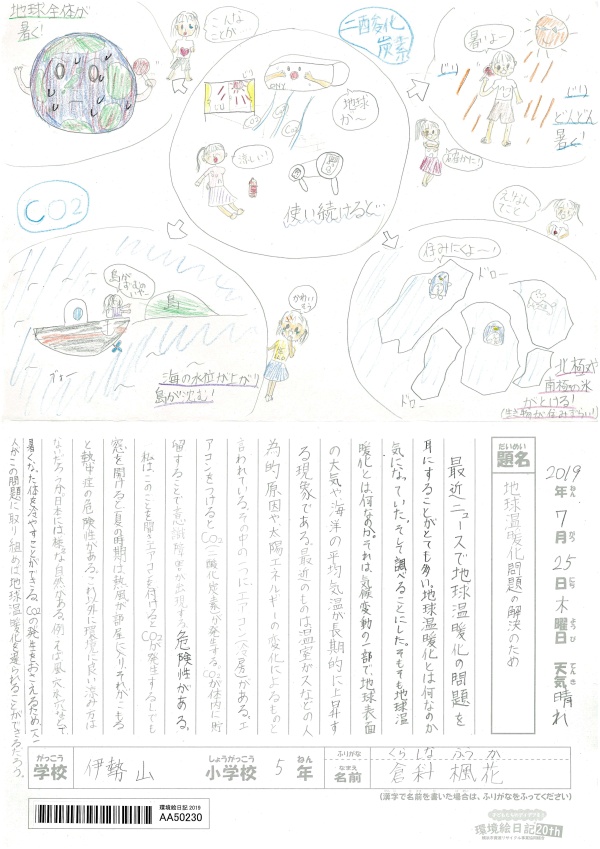 地球全体が
暑く!
こんな
ことが…
二酸化
炭素
地球
が〜
涼しい!
使い続けると…
暑いよー
ジリ
ジリ
どんどん
暑く!
CO2
島が
島
ブォー
〜
海の水位が上がり
島が沈む!
かわい
そう
住みにくよ〜!
ドロー
ドロー
北極や
南極の氷
がとける!
(生き物が住みずらい)
2019年7月25日木曜日 天気晴れ
ねん がつ にち ようび てんき
だいめい
題名
地球温暖化問題の解決のため
最近ニュースで地球温暖化の問題を
耳にすることがとても多い。地球温暖化とは何なのか
気になっていた。そして調べることにした。そもそも地球温
暖化とは何なのか。それは気候変動の一部で、地球表面
の大気や海洋の平均気温が長期的に上昇す
る現象である。最近のものは温室ガスなどの人
為的原因や太陽エネルギーの変化によるものと
言われている。その中の一つにエアコン(冷房)がある。エ
アコンをつけるとCO2(二酸化炭素)が発生する。CO2が体内に貯
留することで意識障害が出現する危険性がある。
私はこのことを聞きエアコンを付けるとCO2が発生するしでも
窓を開けると夏の時期は熱風が部屋に入りそれがこもる
と熱中症の危険性がある。これ以外に環境に良い涼み方は
ないだろうか。日本には様々な自然がある。例えば風穴水穴などで
暑くなった体を冷やすことができる。CO2の発生をおさえるため一人
一人がこの問題に取り組めば地球温暖化を遅らせることができるだろう。
がっこう しょうがっこう ねん ふりがな くらしな ふうか
学校 伊勢山 小学校 5年 なまえ 名前 倉科 楓花
(漢字で名前を書いた場合は、ふりがなをふってください)
環境絵日記 2019
AA50230
環境絵日記20th